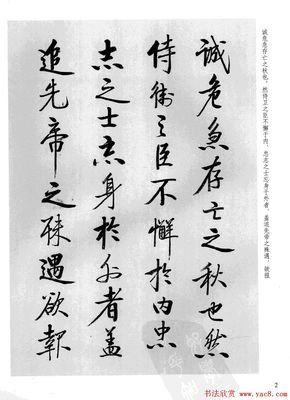 诚危急存亡之秋也，然侍卫之臣不懈于内，忠志之士忘身于外者，盖追先帝之殊遇，欲报
誠危急存亡之秋也然
侍衛之臣不懈於内忠
志之士忘身於外者蓋
追先帝之殊遇欲報
2
书法欣赏 www.yac8.com